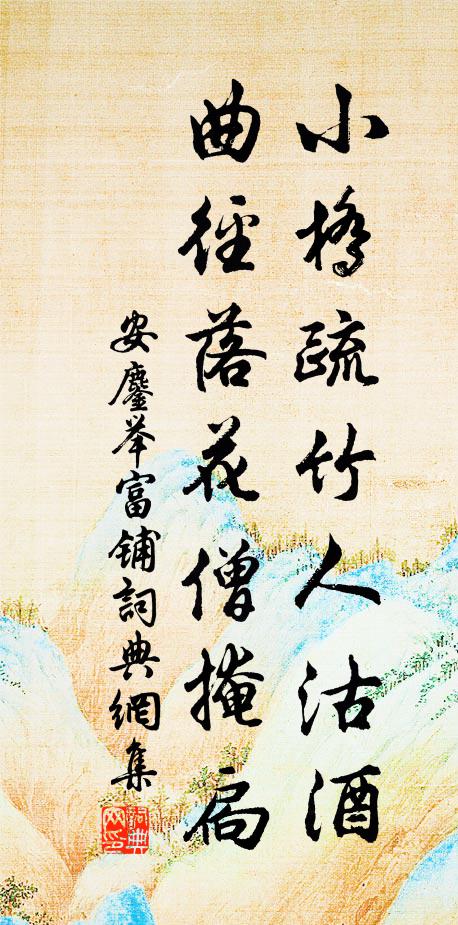 小橋疏竹人沽酒
曲徑落花僧掩扃
安鏖举富铺詞典網集
詞典